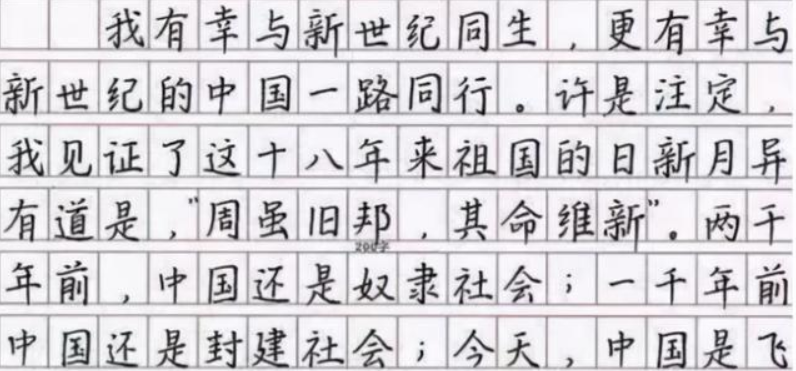 我有幸与新世纪同生，更有幸与
新世纪的中国一路同行。许是注定，
我见证了这十八年来祖国的日新月异
有道是，“周虽旧邦，其命维新”。两千
200字
年前，中国还是奴隶社会；一千年前
中国还是封建社会；今天，中国是飞